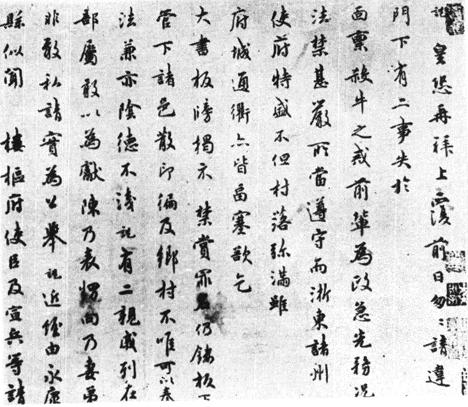 皇恐再拜上覆前日匆匆請違
門下有二事失於
面稟殺牛之戒前輩為政急先務況
法禁甚嚴所當遵守而浙東諸州
使府特盛不但村落弥滿雖
府城通衢亦皆啚塞欲乞
大書板牓揭示禁賞罪名仍鏤板下
管下諸邑散印徧及鄉村不唯可以奉
法兼亦陰德不淺有二親戚列在
部屬敢以為獻陳乃表甥向乃妻弟
非敢私請實為公舉近由永康
縣似聞樓樞府使臣及宣兵等請